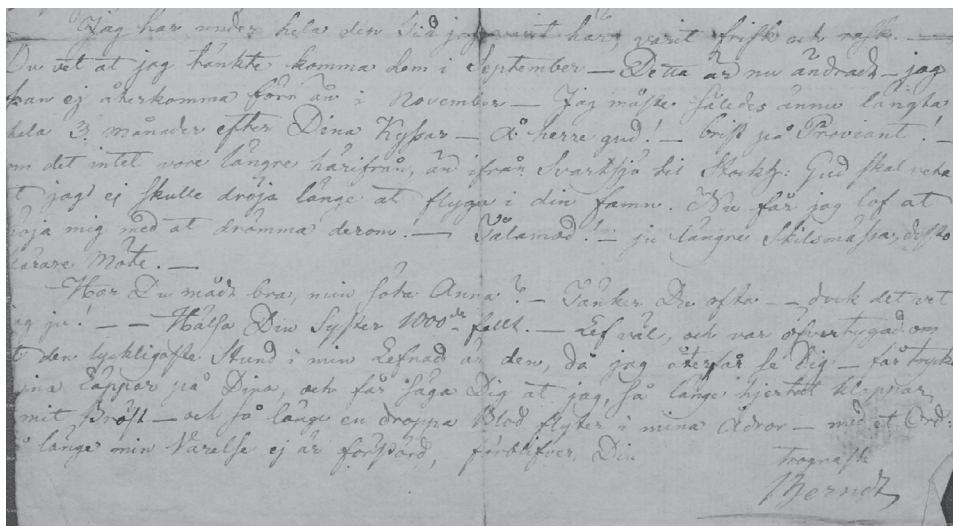 Jag har under hela den Tid jag varit här, varit frisk och rask. —
Du vet at jag tänkte komma hem i September — Detta är nu ändradt — jag
kan ej återkomma förr än i November — Jag måste således ännu längta
hela 3 månader efter Dina Kyssar — å herre gud! — brist på Proviant! —
om det intet vore längre härifrån, än ifrån Svartsjö til Stockh: Gud skal veta
t jag ej skulle dröja länge at flyga i din famn. Nu får jag lof at
öja mig med at drömma derom! — Tålamod! — ju längre Skilsmässa, desto
kärare Möte. —
Har Du mådt bra, min söta Anna? — Tänker Du ofta — — dock det vet
ag ju! — — Hälsa Din Syster 1000de fallt. — Lef väl, och var öfvertygad om
t den lyckligaste Stund i min Lefnad är den, då jag återfår se Dig — får tryck
ina Läppar på Dina, och får säga Dig at jag, så länge hjertat klappar
mit Bröst — och så länge en droppa Blod flyter i mina Ådror — med et Ord:
å länge min Varelse ej är förstörd, förblifver Din
Trognaste
Berndt